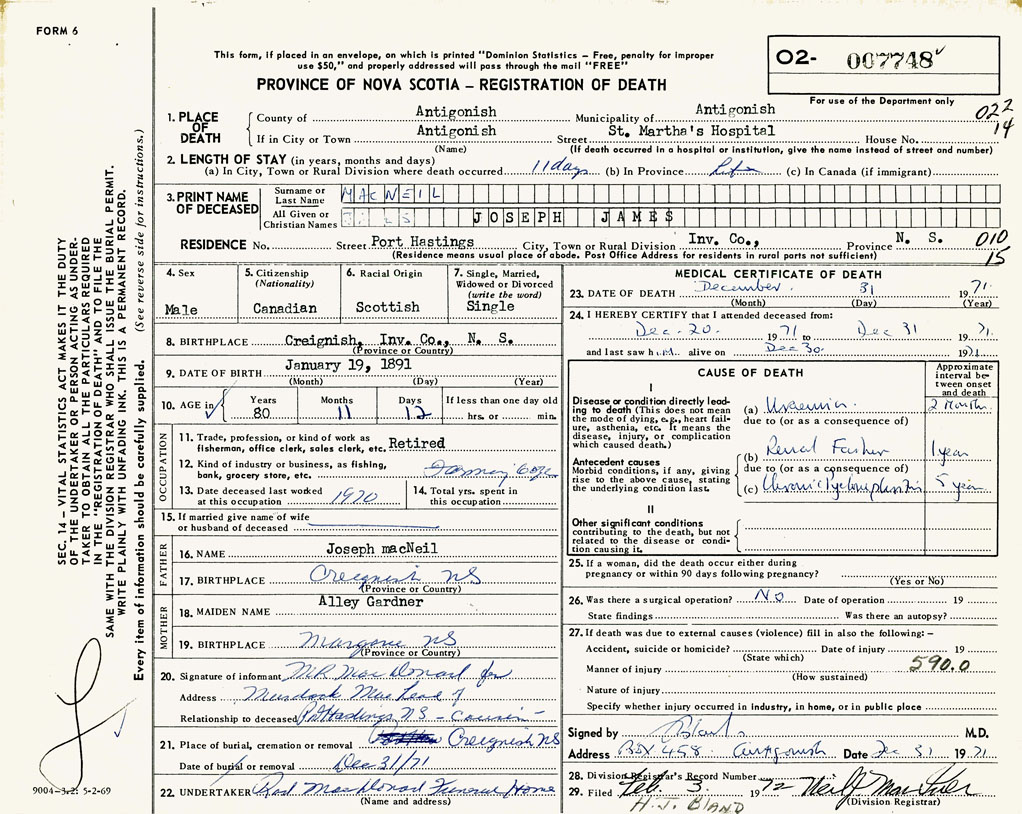 FORM 6
This form, if placed in an envelope, on which is printed "Dominion Statistics – Free, penalty for improper
use $50," and properly addressed will pass through the mail "FREE"
O2- 007748
PROVINCE OF NOVA SCOTIA – REGISTRATION OF DEATH
For use of the Department only
022
14
1. PLACE OF DEATH
County of Antigonish Municipality of Antigonish
If in City or Town Antigonish Street St. Martha's Hospital House No.
(Name) (If death occurred in a hospital or institution, give the name instead of street and number)
2. LENGTH OF STAY (in years, months and days)
(a) In City, Town or Rural Division where death occurred 11 days (b) In Province Life (c) In Canada (if immigrant)
3. PRINT NAME OF DECEASED
Surname or Last Name MACNEIL
All Given or Christian Names JOSEPH JAMES
RESIDENCE No. Street Port Hastings City, Town or Rural Division Inv. Co., Province N. S. 010
(Residence means usual place of abode. Post Office Address for residents in rural parts not sufficient) 15
4. Sex
Male
5. Citizenship
(Nationality)
Canadian
6. Racial Origin
Scottish
7. Single, Married,
Widowed or Divorced
(write the word)
Single
8. BIRTHPLACE Creignish, Inv. Co., N. S.
(Province or Country)
9. DATE OF BIRTH January 19, 1891
(Month) (Day) (Year)
10. AGE in
Years 80 Months 11 Days 12 If less than one day old
hrs. or min.
OCCUPATION
11. Trade, profession, or kind of work as
fisherman, office clerk, sales clerk, etc. Retired
12. Kind of industry or business, as fishing,
bank, grocery store, etc.
13. Date deceased last worked
at this occupation 1920
14. Total yrs. spent in
this occupation
15. If married give name of wife
or husband of deceased
FATHER
16. NAME Joseph macNeil
17. BIRTHPLACE Creignish NS
(Province or Country)
MOTHER
18. MAIDEN NAME Alley Gardner
19. BIRTHPLACE NS
(Province or Country)
20. Signature of informant MR MacDonald for
Address Murdock MacLead
Relationship to deceased Pt Hastings NS - Cousin -
21. Place of burial, cremation or removal Creignish NS
Date of burial or removal Dec 31/71
22. UNDERTAKER Rod MacDonald Funeral Home
(Name and address)
MEDICAL CERTIFICATE OF DEATH
23. DATE OF DEATH December 31 1971.
(Month) (Day) (Year)
24. I HEREBY CERTIFY that I attended deceased from:
Dec. 20. 1971 to Dec 31 1971.
and last saw him alive on Dec 30. 1971.
CAUSE OF DEATH
Approximate
interval be-
tween onset
and death
I
Disease or condition directly lead-
ing to death (This does not mean
the mode of dying, e.g., heart fail-
ure, asthenia, etc. It means the
disease, injury, or complication
which caused death.)
(a) Uraemia. 2 Month.
due to (or as a consequence of)
Antecedent causes
Morbid conditions, if any, giving
rise to the above cause, stating
the underlying condition last.
(b) Renal Failure 1 year
due to (or as a consequence of)
(c) Chronic Pyelonephritis 5 year
II
Other significant conditions
contributing to the death, but not
related to the disease or condi-
tion causing it.
25. If a woman, did the death occur either during
pregnancy or within 90 days following pregnancy?
(Yes or No)
26. Was there a surgical operation? No Date of operation 19
State findings Was there an autopsy?
27. If death was due to external causes (violence) fill in also the following: –
Accident, suicide or homicide? Date of injury 19
(State which)
Manner of injury 590.0
(How sustained)
Nature of injury
Specify whether injury occurred in industry, in home, or in public place
Signed by M.D.
Address Box 458. Antigonish Date Dec 31 1971.
28. Division Registrar's Record Number
29. Filed Feb. 3. 1972
(Division Registrar)
H. J. BLAND
SEC. 14 – VITAL STATISTICS ACT MAKES IT THE DUTY
OF THE UNDERTAKER OR PERSON ACTING AS UNDER-
TAKER TO OBTAIN ALL THE PARTICULARS REQUIRED
IN THE "REGISTRATION OF DEATH" AND TO FILE THE
SAME WITH THE DIVISION REGISTRAR WHO SHALL ISSUE THE BURIAL PERMIT.
WRITE PLAINLY WITH UNFADING INK. THIS IS A PERMANENT RECORD.
Every item of information should be carefully supplied. (See reverse side for instructions.)
9004-3.2: 5-2-69